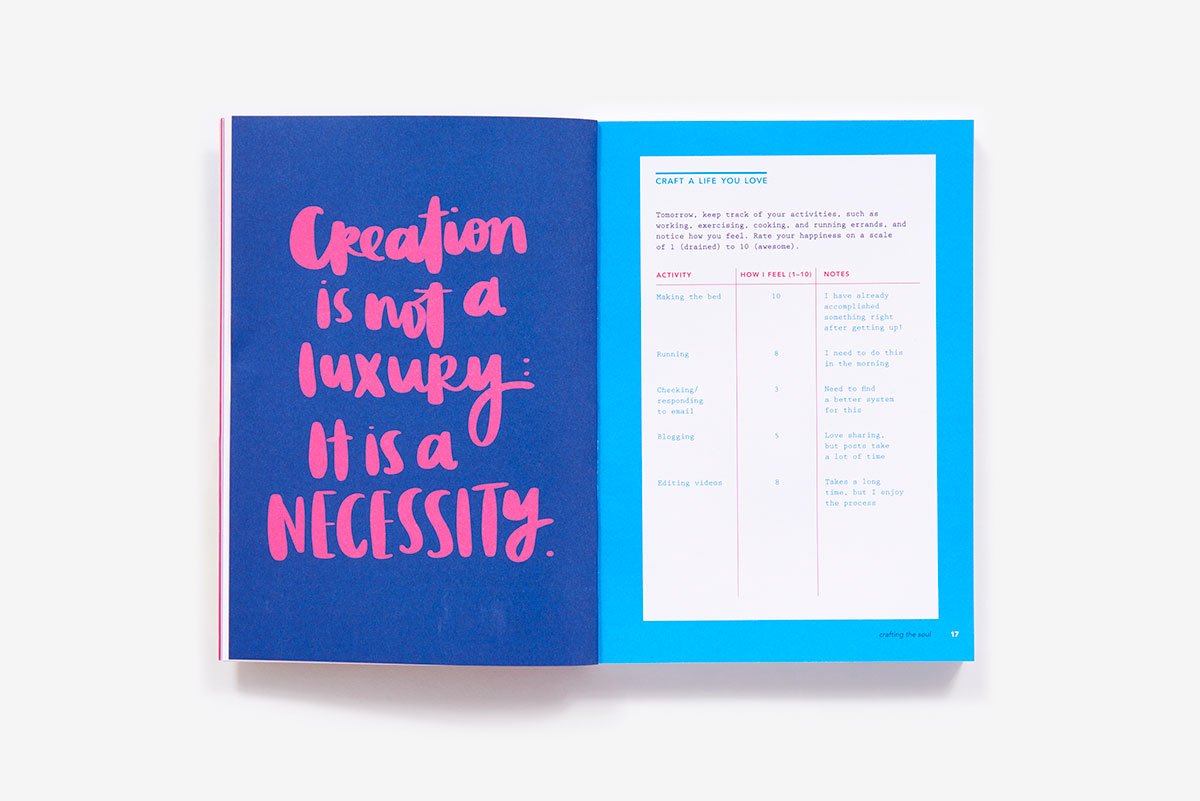 Creation
is not a
luxury:
It is a
NECESSITY.
CRAFT A LIFE YOU LOVE
Tomorrow, keep track of your activities, such as
working, exercising, cooking, and running errands, and
notice how you feel. Rate your happiness on a scale
of 1 (drained) to 10 (awesome).
ACTIVITY HOW I FEEL (1–10) NOTES
Making the bed 10 I have already
accomplished
something right
after getting up!
Running 8 I need to do this
in the morning
Checking/ 3 Need to find
responding a better system
to email for this
Blogging 5 Love sharing,
but posts take
a lot of time
Editing videos 8 Takes a long
time, but I enjoy
the process
crafting the soul 17